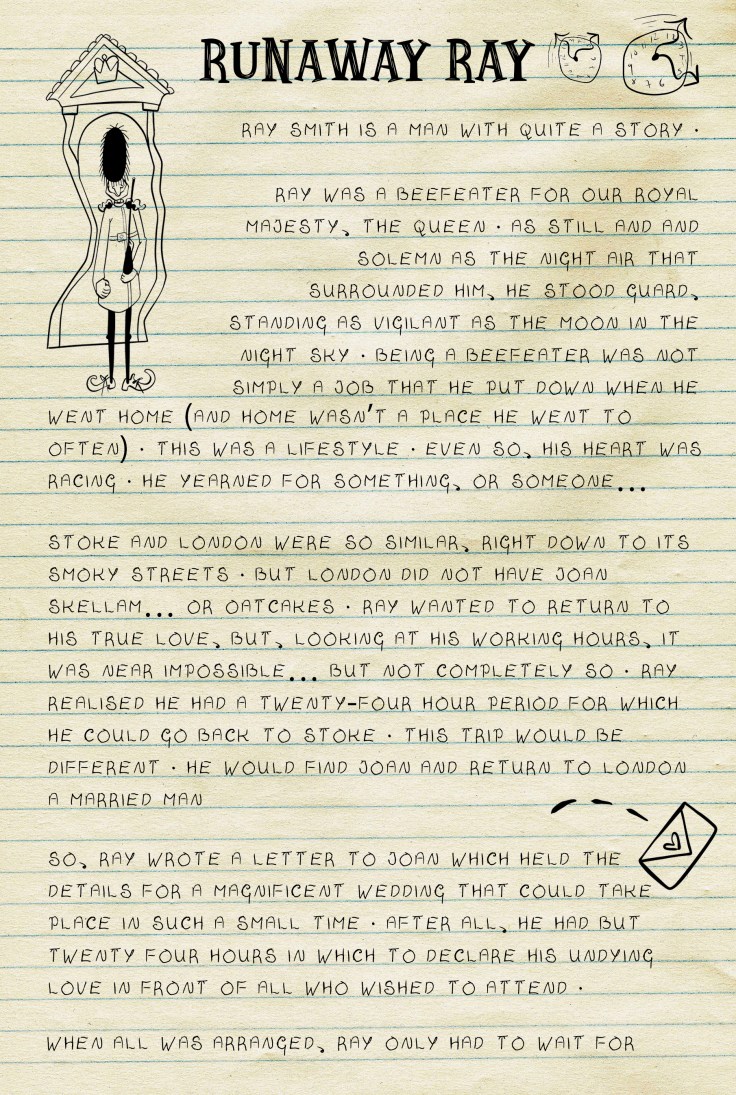 RUNAWAY RAY
RAY SMITH IS A MAN WITH QUITE A STORY.
RAY WAS A BEEFEATER FOR OUR ROYAL
MAJESTY, THE QUEEN. AS STILL AND AND
SOLEMN AS THE NIGHT AIR THAT
SURROUNDED HIM, HE STOOD GUARD,
STANDING AS VIGILANT AS THE MOON IN THE
NIGHT SKY. BEING A BEEFEATER WAS NOT
SIMPLY A JOB THAT HE PUT DOWN WHEN HE
WENT HOME (AND HOME WASN'T A PLACE HE WENT TO
OFTEN). THIS WAS A LIFESTYLE. EVEN SO, HIS HEART WAS
RACING. HE YEARNED FOR SOMETHING, OR SOMEONE...
STOKE AND LONDON WERE SO SIMILAR, RIGHT DOWN TO ITS
SMOKY STREETS. BUT LONDON DID NOT HAVE JOAN
SKELLAM... OR OATCAKES. RAY WANTED TO RETURN TO
HIS TRUE LOVE, BUT, LOOKING AT HIS WORKING HOURS, IT
WAS NEAR IMPOSSIBLE... BUT NOT COMPLETELY SO. RAY
REALISED HE HAD A TWENTY-FOUR HOUR PERIOD FOR WHICH
HE COULD GO BACK TO STOKE. THIS TRIP WOULD BE
DIFFERENT. HE WOULD FIND JOAN AND RETURN TO LONDON
A MARRIED MAN
SO, RAY WROTE A LETTER TO JOAN WHICH HELD THE
DETAILS FOR A MAGNIFICENT WEDDING THAT COULD TAKE
PLACE IN SUCH A SMALL TIME. AFTER ALL, HE HAD BUT
TWENTY FOUR HOURS IN WHICH TO DECLARE HIS UNDYING
LOVE IN FRONT OF ALL WHO WISHED TO ATTEND.
WHEN ALL WAS ARRANGED, RAY ONLY HAD TO WAIT FOR